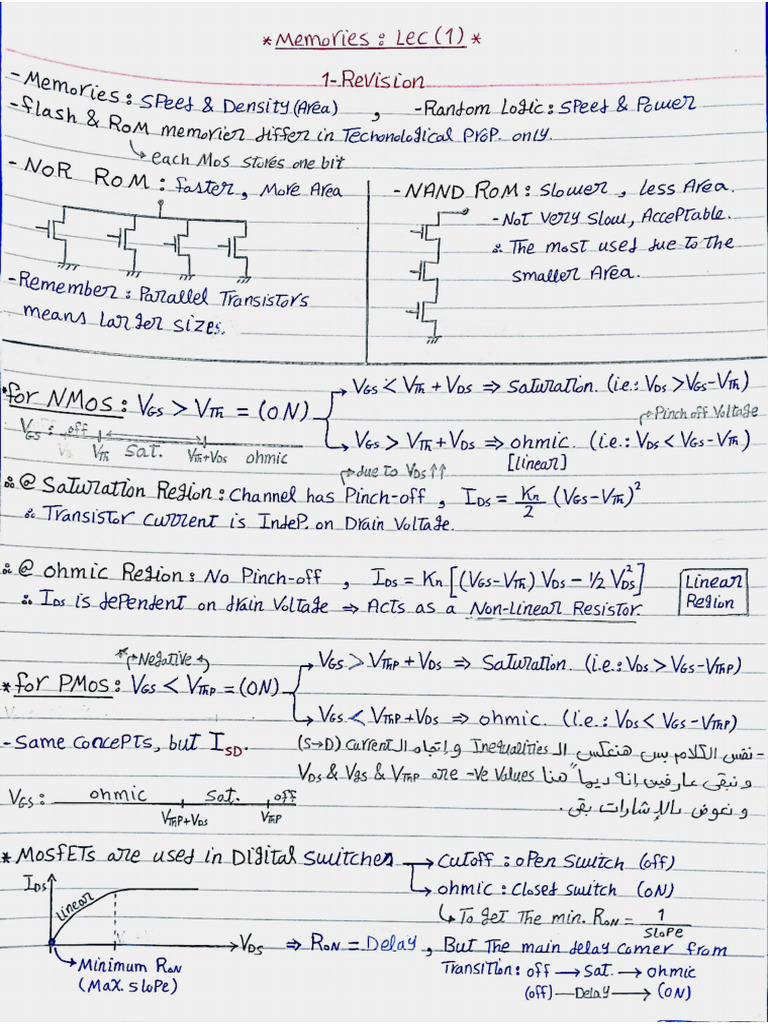 * Memories: Lec (1) *
1- Revision
- Memories: Speed & Density (Area) , - Random Logic: Speed & Power
- flash & ROM memories differ in Techonological Prop. only.
each Mos stores one bit
- NOR ROM: faster, More Area
- Remember: Parallel Transistors
means larger sizes.
- NAND ROM: Slower, less Area.
- Not very slow, Acceptable.
∴ The most used due to the
smaller Area.
* for NMOS: VGS > VTh = (ON)
VGS < VTh + VDS ⇒ Saturation. (i.e.: VDS > VGS-VTh)
Pinch off Voltage
VGS > VTh + VDS ⇒ ohmic. (i.e.: VDS < VGS-VTh)
[linear]
VGS: off VTh Sat. VTh+VDS ohmic
due to VDS ↑↑
∴ @ Saturation Region: Channel has Pinch-off , IDS = Kn/2 (VGS-VTh)²
∴ Transistor current is Indep. on Drain Voltage.
∴ @ ohmic Region: No Pinch-off , IDS = Kn [(VGS-VTh) VDS - 1/2 VDS²]
Linear Region
∴ IDS is dependent on drain Voltage ⇒ Acts as a Non-Linear Resistor.
* Negative
* for PMOS: VGS < VThP = (ON)
VGS > VThP + VDS ⇒ Saturation. (i.e.: VDS > VGS-VThP)
VGS < VThP + VDS ⇒ ohmic. (i.e.: VDS < VGS - VThP)
- Same concepts, but ISD.
- نفس الكلام بس هنعكس الـ Inequalities و اتجاه الـ Current (S→D)
و نبقى عارفين إنه ديماً هنا VDS & VGS & VThP are -ve Values
و نعوض بالإشارات بقى.
VGS: ohmic VThP+VDS Sat. VThP off
* MOSfETs are used in Digital Switches
cutoff: open Switch (off)
ohmic: Closed switch (ON)
To get The min. RON = 1/slope
IDS
Linear
VDS
Minimum RON
(Max. slope)
⇒ RON = Delay , But The main delay comes from
Transition: off → Sat. → ohmic
(off) — Delay → (ON)